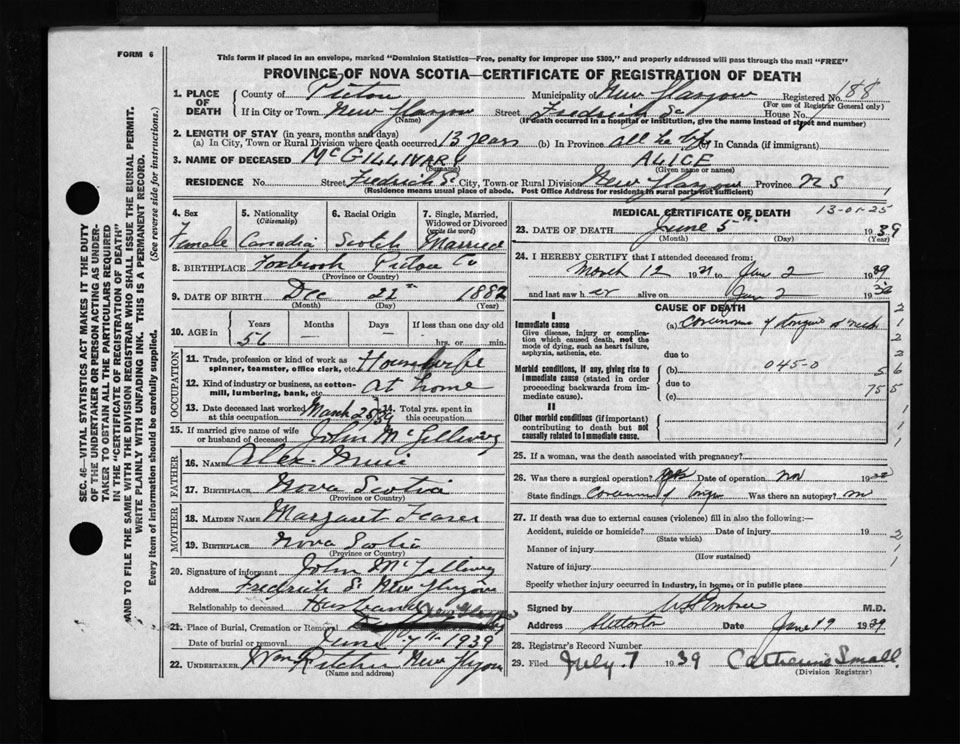 FORM 6
This form if placed in an envelope, marked "Dominion Statistics—Free, penalty for improper use $300," and properly addressed will pass through the mail "FREE"
PROVINCE OF NOVA SCOTIA—CERTIFICATE OF REGISTRATION OF DEATH
1. PLACE OF DEATH County of Pictou Municipality of New Glasgow Registered No. 188
(For use of Registrar General only)
If in City or Town New Glasgow Street Fredrich St House No.
(Name) (If death occurred in a hospital or institution, give the name instead of street and number)
2. LENGTH OF STAY (in years, months and days)
(a) In City, Town or Rural Division where death occurred 13 years (b) In Province all her life (c) In Canada (if immigrant)
3. NAME OF DECEASED McGILLIVARY ALICE
(Surname) (Given name or names)
RESIDENCE No. Street Fredrich St City, Town or Rural Division New Glasgow Province N S
(Residence means usual place of abode. Post Office Address for residents in rural parts not sufficient)
4. Sex
Female
5. Nationality
(Citizenship)
Canadia
6. Racial Origin
Scotch
7. Single, Married, Widowed or Divorced
(write the word)
Married
8. BIRTHPLACE Foxbrook Pictou Co
(Province or Country)
9. DATE OF BIRTH Dec 1882
(Month) (Day) (Year)
10. AGE in Years Months Days If less than one day old
56 — — hrs. or min.
OCCUPATION
11. Trade, profession or kind of work as spinner, teamster, office clerk, etc. Housewife
12. Kind of industry or business, as cotton-mill, lumbering, bank, etc. At home
13. Date deceased last worked at this occupation March 25/39 14. Total yrs. spent in this occupation
15. If married give name of wife or husband of deceased John McGillivary
FATHER
16. NAME Alex
17. BIRTHPLACE Nova Scotia
(Province or Country)
MOTHER
18. MAIDEN NAME Margaret Fraser
19. BIRTHPLACE Nova Scotia
(Province or Country)
20. Signature of informant John McGillivary
Address Fredrich St New Glasgow
Relationship to deceased Husband
21. Place of Burial, Cremation or Removal New Glasgow
Date of burial or removal June 7th 1939
22. UNDERTAKER Wm Ritchie New Glasgow
(Name and address)
MEDICAL CERTIFICATE OF DEATH 13-01-25
23. DATE OF DEATH June 5th 1939
(Month) (Day) (Year)
24. I HEREBY CERTIFY that I attended deceased from:
March 12 19 to June 2 1939
and last saw her alive on June 2 19
CAUSE OF DEATH
I
Immediate cause
Give disease, injury or complication which caused death, not the mode of dying, such as heart failure, asphyxia, asthenia, etc.
(a) Carcinoma of tongue & neck
due to
Morbid conditions, if any, giving rise to immediate cause (stated in order proceeding backwards from immediate cause).
(b) 045-0
due to
(c)
II
Other morbid conditions (if important) contributing to death but not causally related to immediate cause.
25. If a woman, was the death associated with pregnancy?
26. Was there a surgical operation? Date of operation Nov 19
State findings Carcinoma of tongue Was there an autopsy? no
27. If death was due to external causes (violence) fill in also the following:—
Accident, suicide or homicide? Date of injury 19
(State which)
Manner of injury
(How sustained)
Nature of injury
Specify whether injury occurred in industry, in home, or in public place
Signed by M.D.
Address Stellarton Date June 19 1939
28. Registrar's Record Number
29. Filed July 7 1939 Catherine Small
(Division Registrar)
SEC. 46—VITAL STATISTICS ACT MAKES IT THE DUTY
OF THE UNDERTAKER OR PERSON ACTING AS UNDER-
TAKER TO OBTAIN ALL THE PARTICULARS REQUIRED
IN THE "CERTIFICATE OF REGISTRATION OF DEATH"
AND TO FILE THE SAME WITH THE DIVISION REGISTRAR WHO SHALL ISSUE THE BURIAL PERMIT.
WRITE PLAINLY WITH UNFADING INK. THIS IS A PERMANENT RECORD.
Every item of information should be carefully supplied. (See reverse side for instructions.)